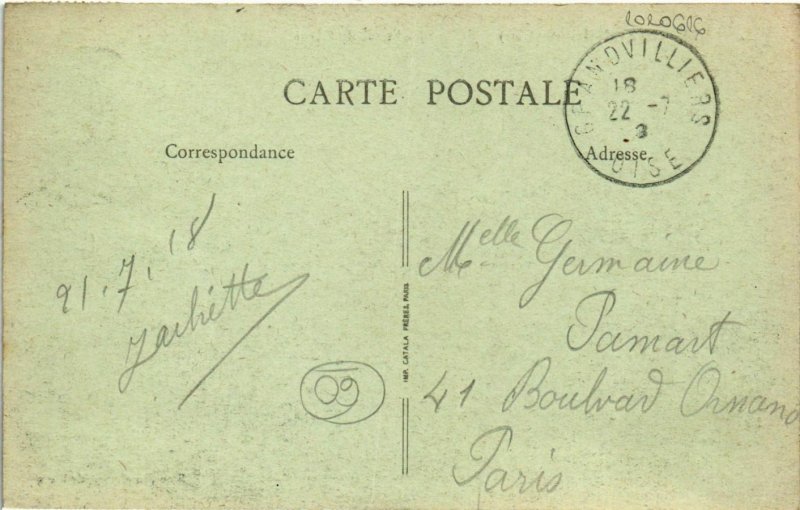 CARTE POSTALE
Correspondance
Adresse
GRANDVILLIERS
18
22 -7
OISE
21.7.18
Melle Germaine
Pamart
41 Boulvad Ornano
Paris
IMP. CATALA FRÈRES, PARIS
09